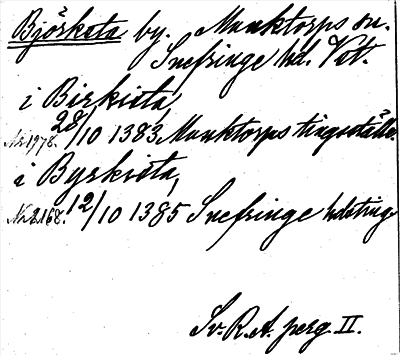 Björksta by. Munktorps sn.
Snefringe hd. Vstl.
i Birkista,
Nr 1978. 28/10 1383 Munktorps tingsställe.
i Byrkista,
Nr 2168. 12/10 1385 Snefringe hdsting
Sv. R.A. perg. II.